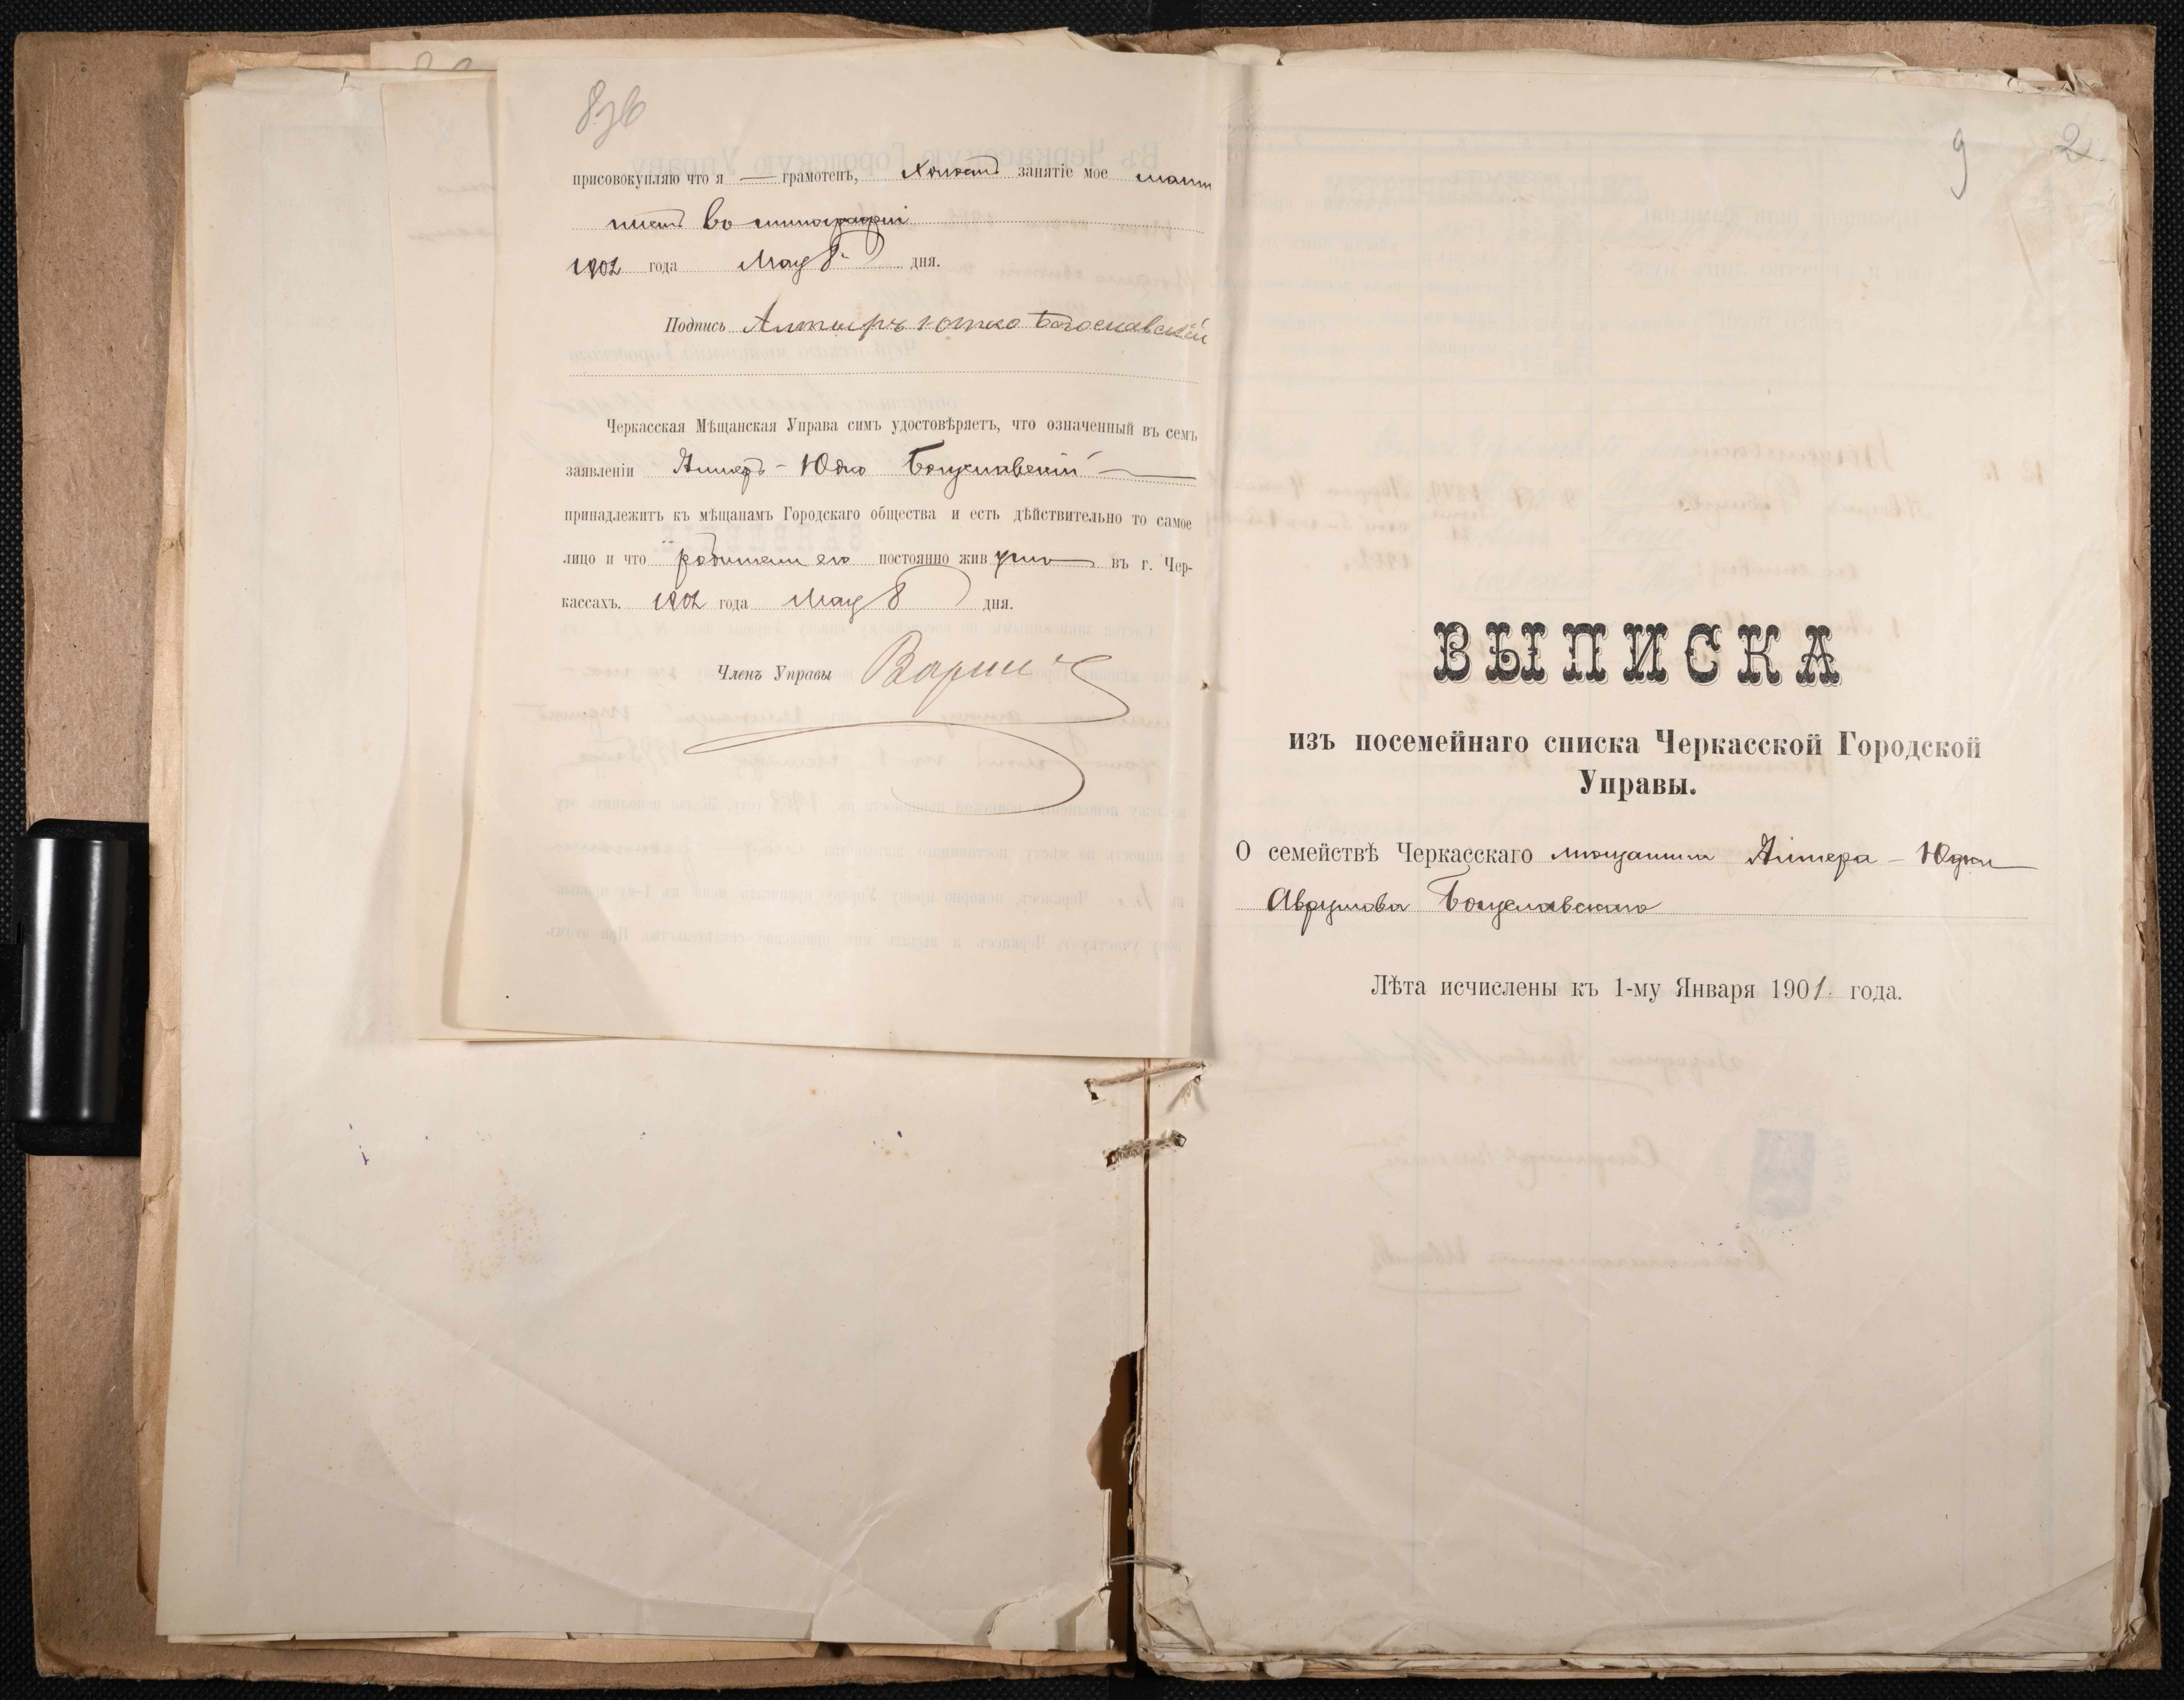 8 об
присовокупляю что я — грамотенъ, Холостъ занятіе мое маши
нистъ во типографіи
1902 года Мая 8 дня.
Подпись Алтыръ Ютко Богославскій
Черкасская Мѣщанская Управа симъ удостовѣряетъ, что означенный въ семъ
заявленіи Алтеръ-Юдко Богуславскій —
принадлежитъ къ мѣщанамъ Городскаго общества и есть дѣйствительно то самое
лицо и что родители его постоянно живутъ въ г. Чер-
кассахъ. 1902 года Мая 8 дня.
Членъ Управы
9 2
ВЫПИСКА
изъ посемейнаго списка Черкасской Городской
Управы.
О семействѣ Черкасскаго мѣщанина Алтера-Юдки
Аврумова Богуславскаго
Лѣта исчислены къ 1-му Января 1901 года.